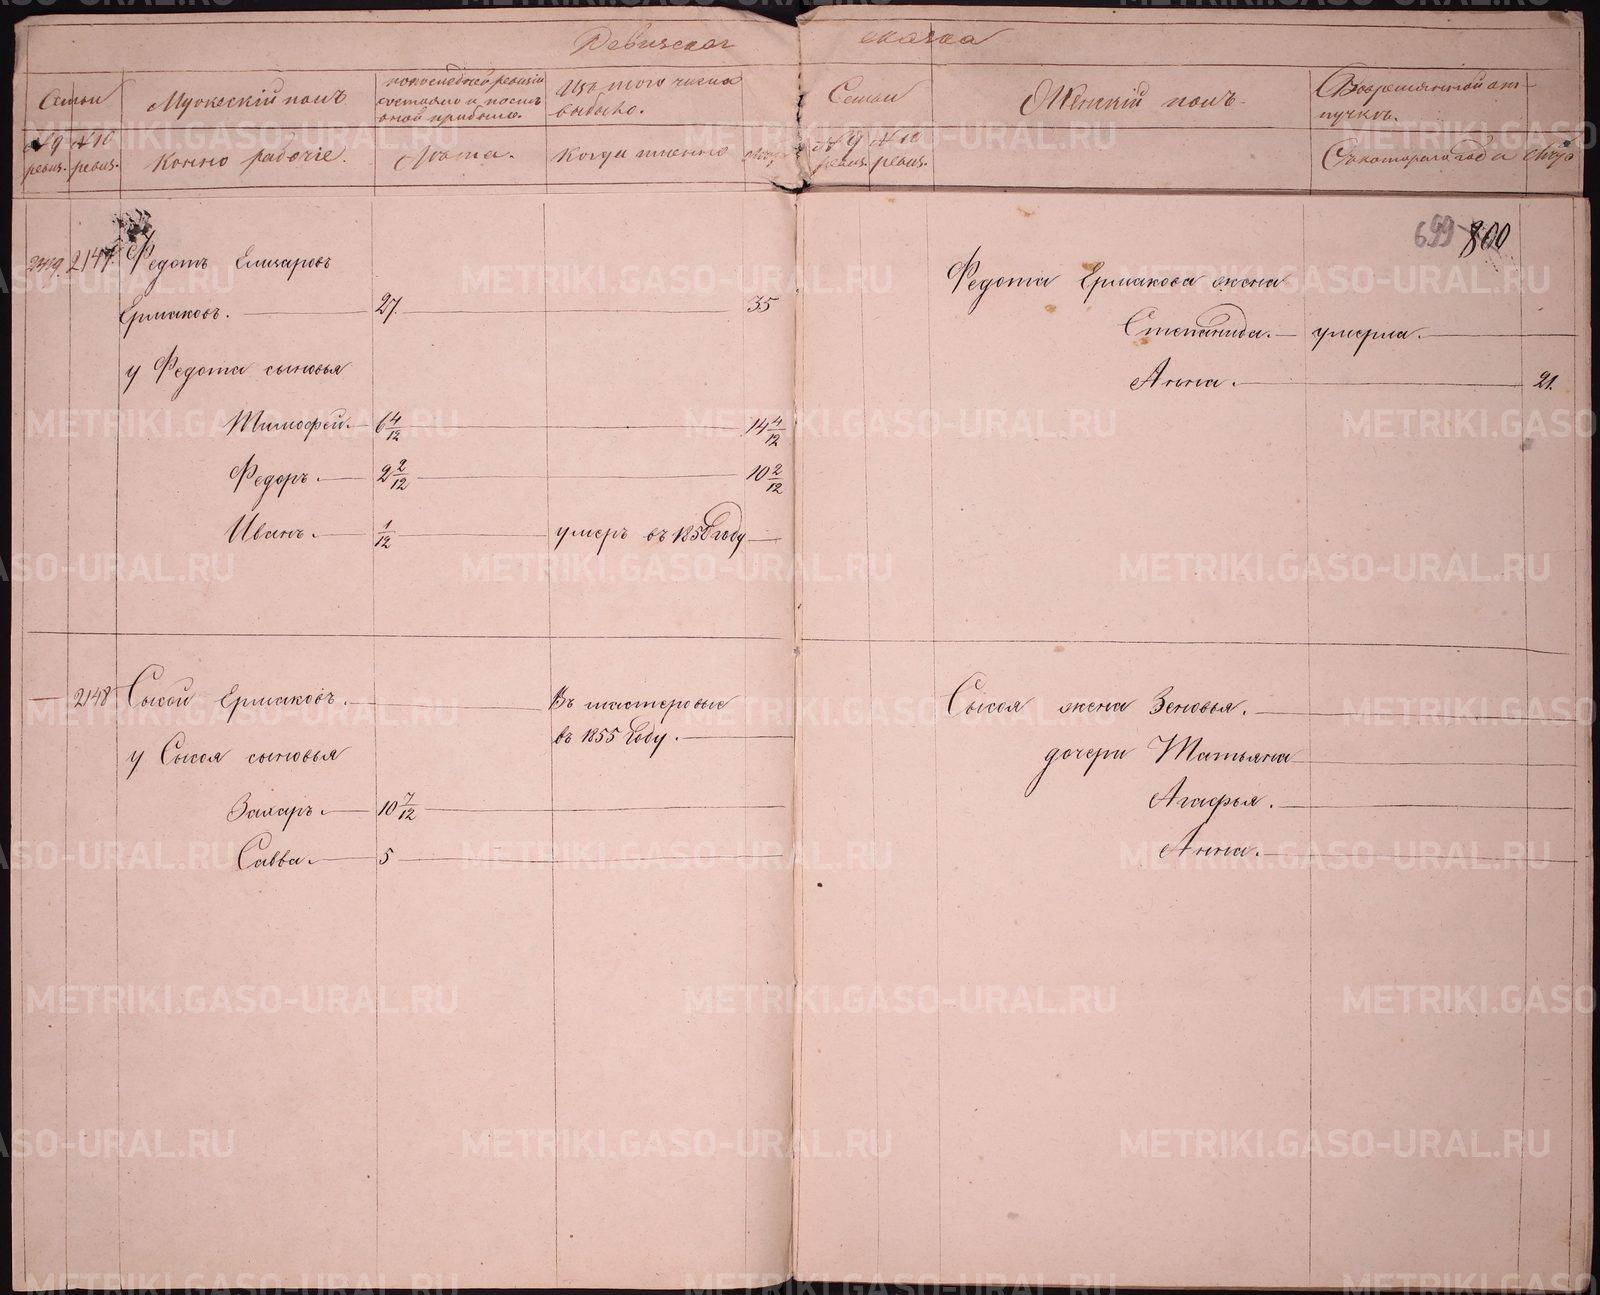 Ревизская сказка
Семьи
№ 9 ревиз.
№ 10 ревиз.
Мужескій полъ
Конно рабочіе.
По последней ревизіи
состояло и после
оной прибыло.
Лета.
Изъ того числа
выбыло.
Когда именно
Семьи
№ 9 ревиз.
№ 10 ревиз.
Женскій полъ.
Во временной от-
лучкѣ.
Съ котораго года
699 800
2147. Федотъ Елизаровъ
Ермаковъ. 27. 35
у Федота сыновья
Тимофей. 6 4/12 14 4/12
Федоръ. 2 2/12 10 2/12
Иванъ. 1/12 умеръ въ 1850 году
Федота Ермакова жена
Степанида. умерла.
Анна. 21.
2148 Сысой Ермаковъ. Въ мастеровые
въ 1855 году.
у Сысоя сыновья
Захаръ. 10 7/12
Савва. 5
Сысоя жена Зеновья.
дочери Татьяна
Агафья.
Анна.
METRIKI.GASO-URAL.RU